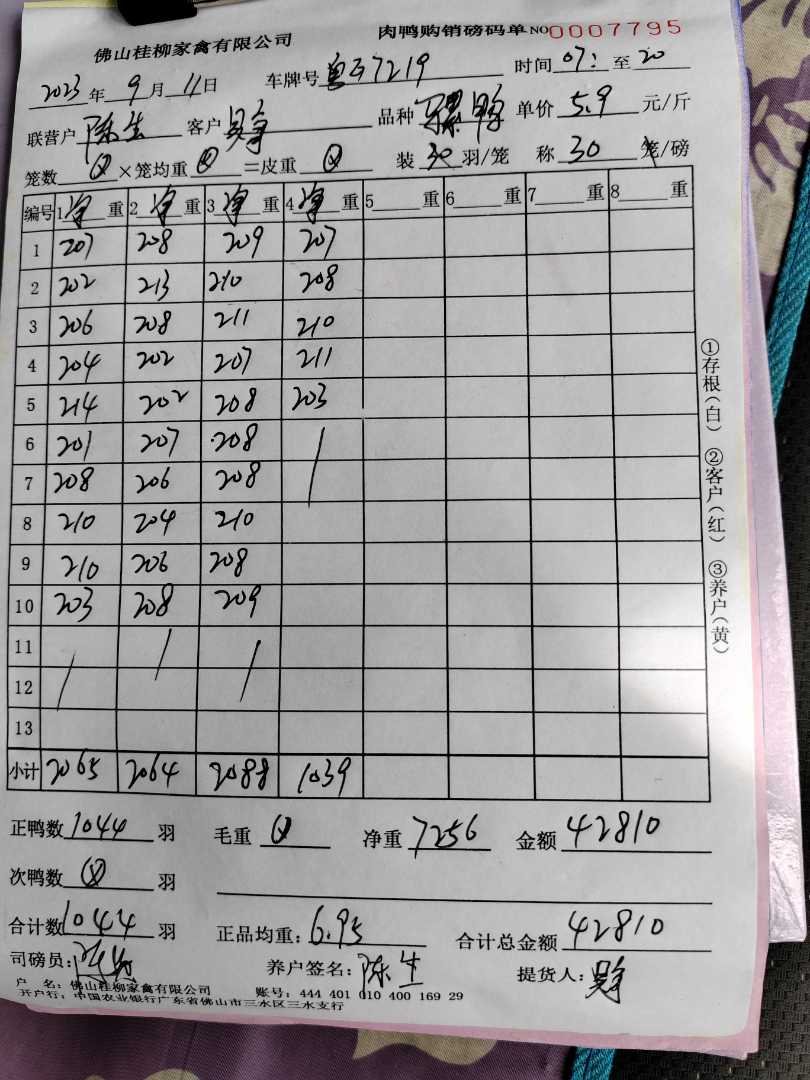 佛山桂柳家禽有限公司 肉鸭购销磅码单 NO 0007795
2023年9月11日 车牌号 7219 时间07:至20
联营户 陈生 客户 品种 骡鸭 单价 5.9 元/斤
笼数 0 ×笼均重 0 =皮重 0 装 30 羽/笼 称 30 笼/磅
编号 1净重 2净重 3净重 4净重 5重 6重 7重 8重
1 207 208 209 207
2 202 213 210 208
3 206 208 211 210
4 204 202 207 211
5 214 202 208 203
6 201 207 208
7 208 206 208
8 210 204 210
9 210 206 208
10 203 208 209
11
12
13
小计 2065 2064 2088 1039
正鸭数 1044 羽 毛重 0 净重 7256 金额 42810
次鸭数 0 羽
合计数 1044 羽 正品均重: 6.95 合计总金额 42810
司磅员: 养户签名: 陈生 提货人:
户 名: 佛山桂柳家禽有限公司 账号: 444 401 010 400 169 29
开户行: 中国农业银行广东省佛山市三水区三水支行
①存根(白) ②客户(红) ③养户(黄)